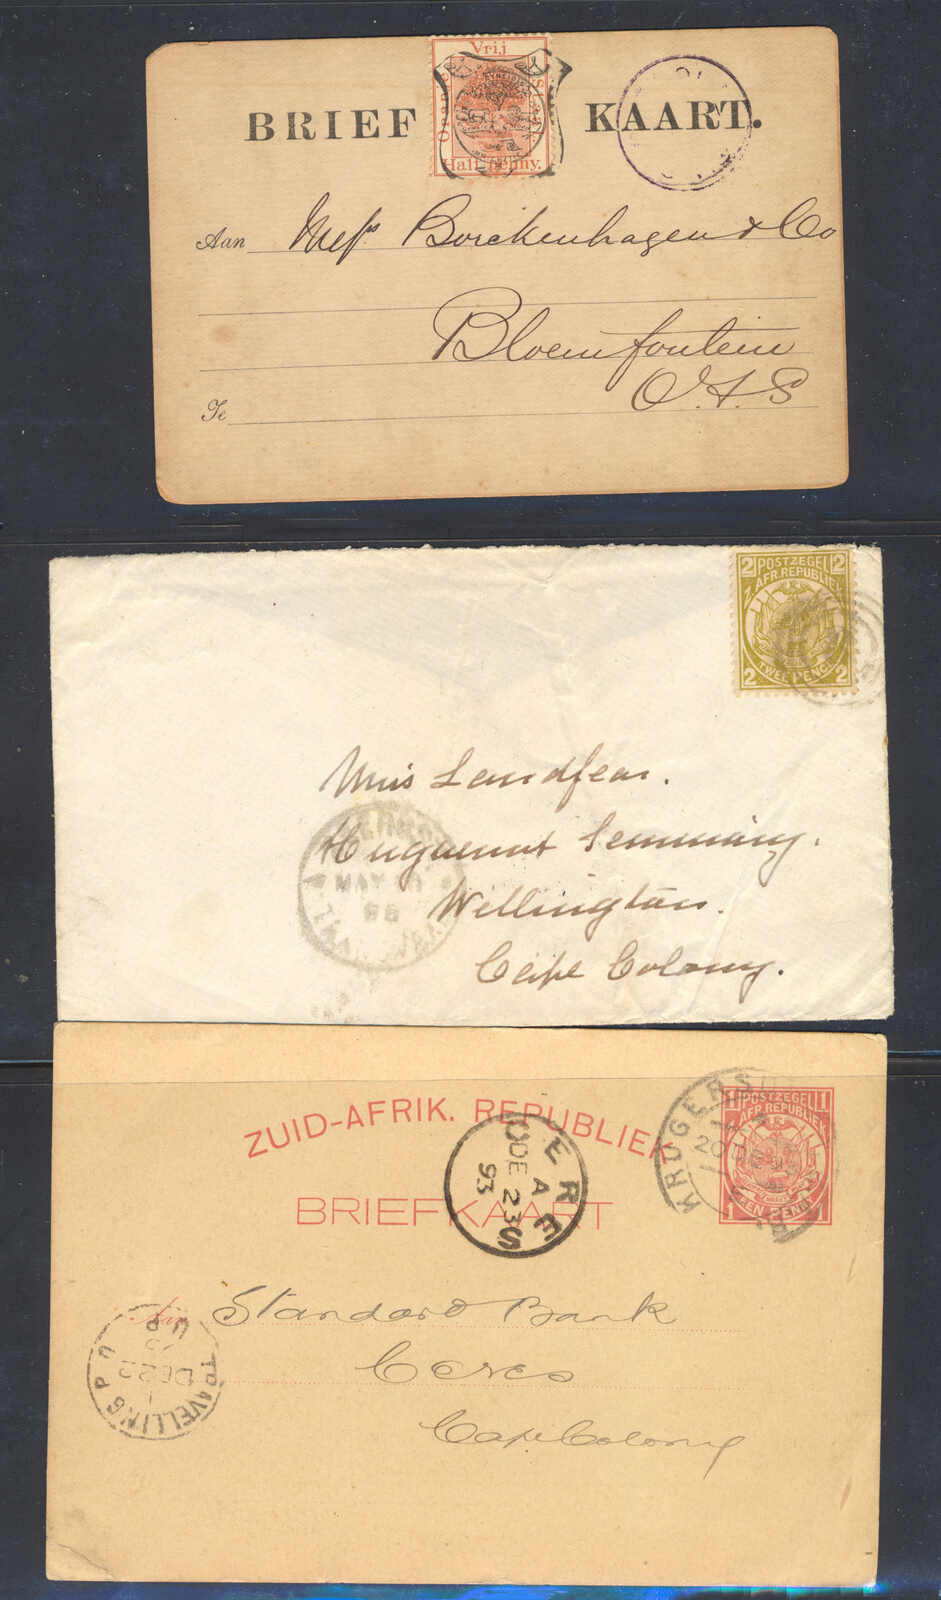 Vrij
Half-penny.
BRIEF KAART.
Aan Mess Borckenhagen & Co
Bloemfontein
O.F.S
Te
2 POSTZEGEL 2
Z. AFR. REPUBLIEK
2 TWEE PENCE 2
Miss Landfear.
Huguenot Seminary.
Wellington.
Cape Colony.
MAY
TRANSVAAL
ZUID-AFRIK. REPUBLIEK
BRIEFKAART
1 POSTZEGEL 1
Z. AFR. REPUBLIEK
1 EEN PENNY 1
KRUGERSD
20 DE
CERES
A
DE 23
93
Aan Standard Bank
Ceres
Cape Colony
TRAVELLING P.O
DE 22
UP